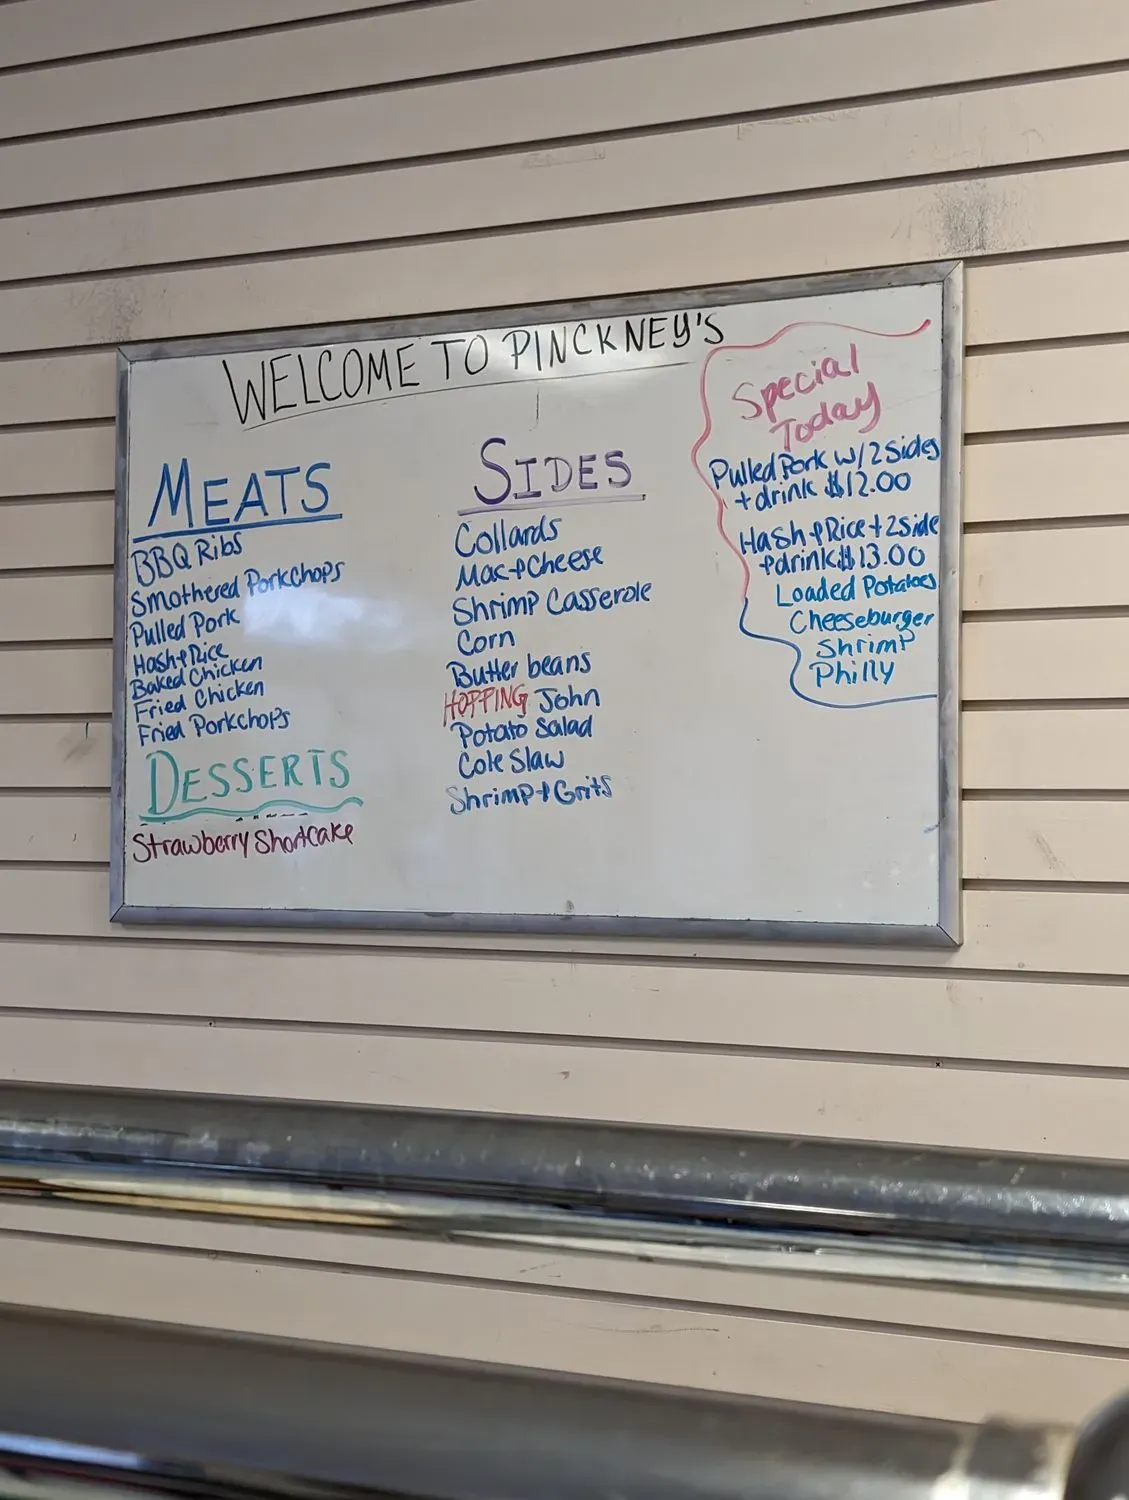 WELCOME TO PINCKNEY'S
MEATS
BBQ Ribs
Smothered Porkchops
Pulled Pork
Hash+Rice
Baked Chicken
Fried Chicken
Fried Porkchops
DESSERTS
Strawberry Shortcake
SIDES
Collards
Mac+Cheese
Shrimp Casserole
Corn
Butter beans
HOPPING John
Potato Salad
Cole Slaw
Shrimp+Grits
Special
Today
Pulled Pork w/2 Sides
+drink $12.00
Hash+Rice+2side
+drink $13.00
Loaded Potatoes
Cheeseburger
Shrimp
Philly